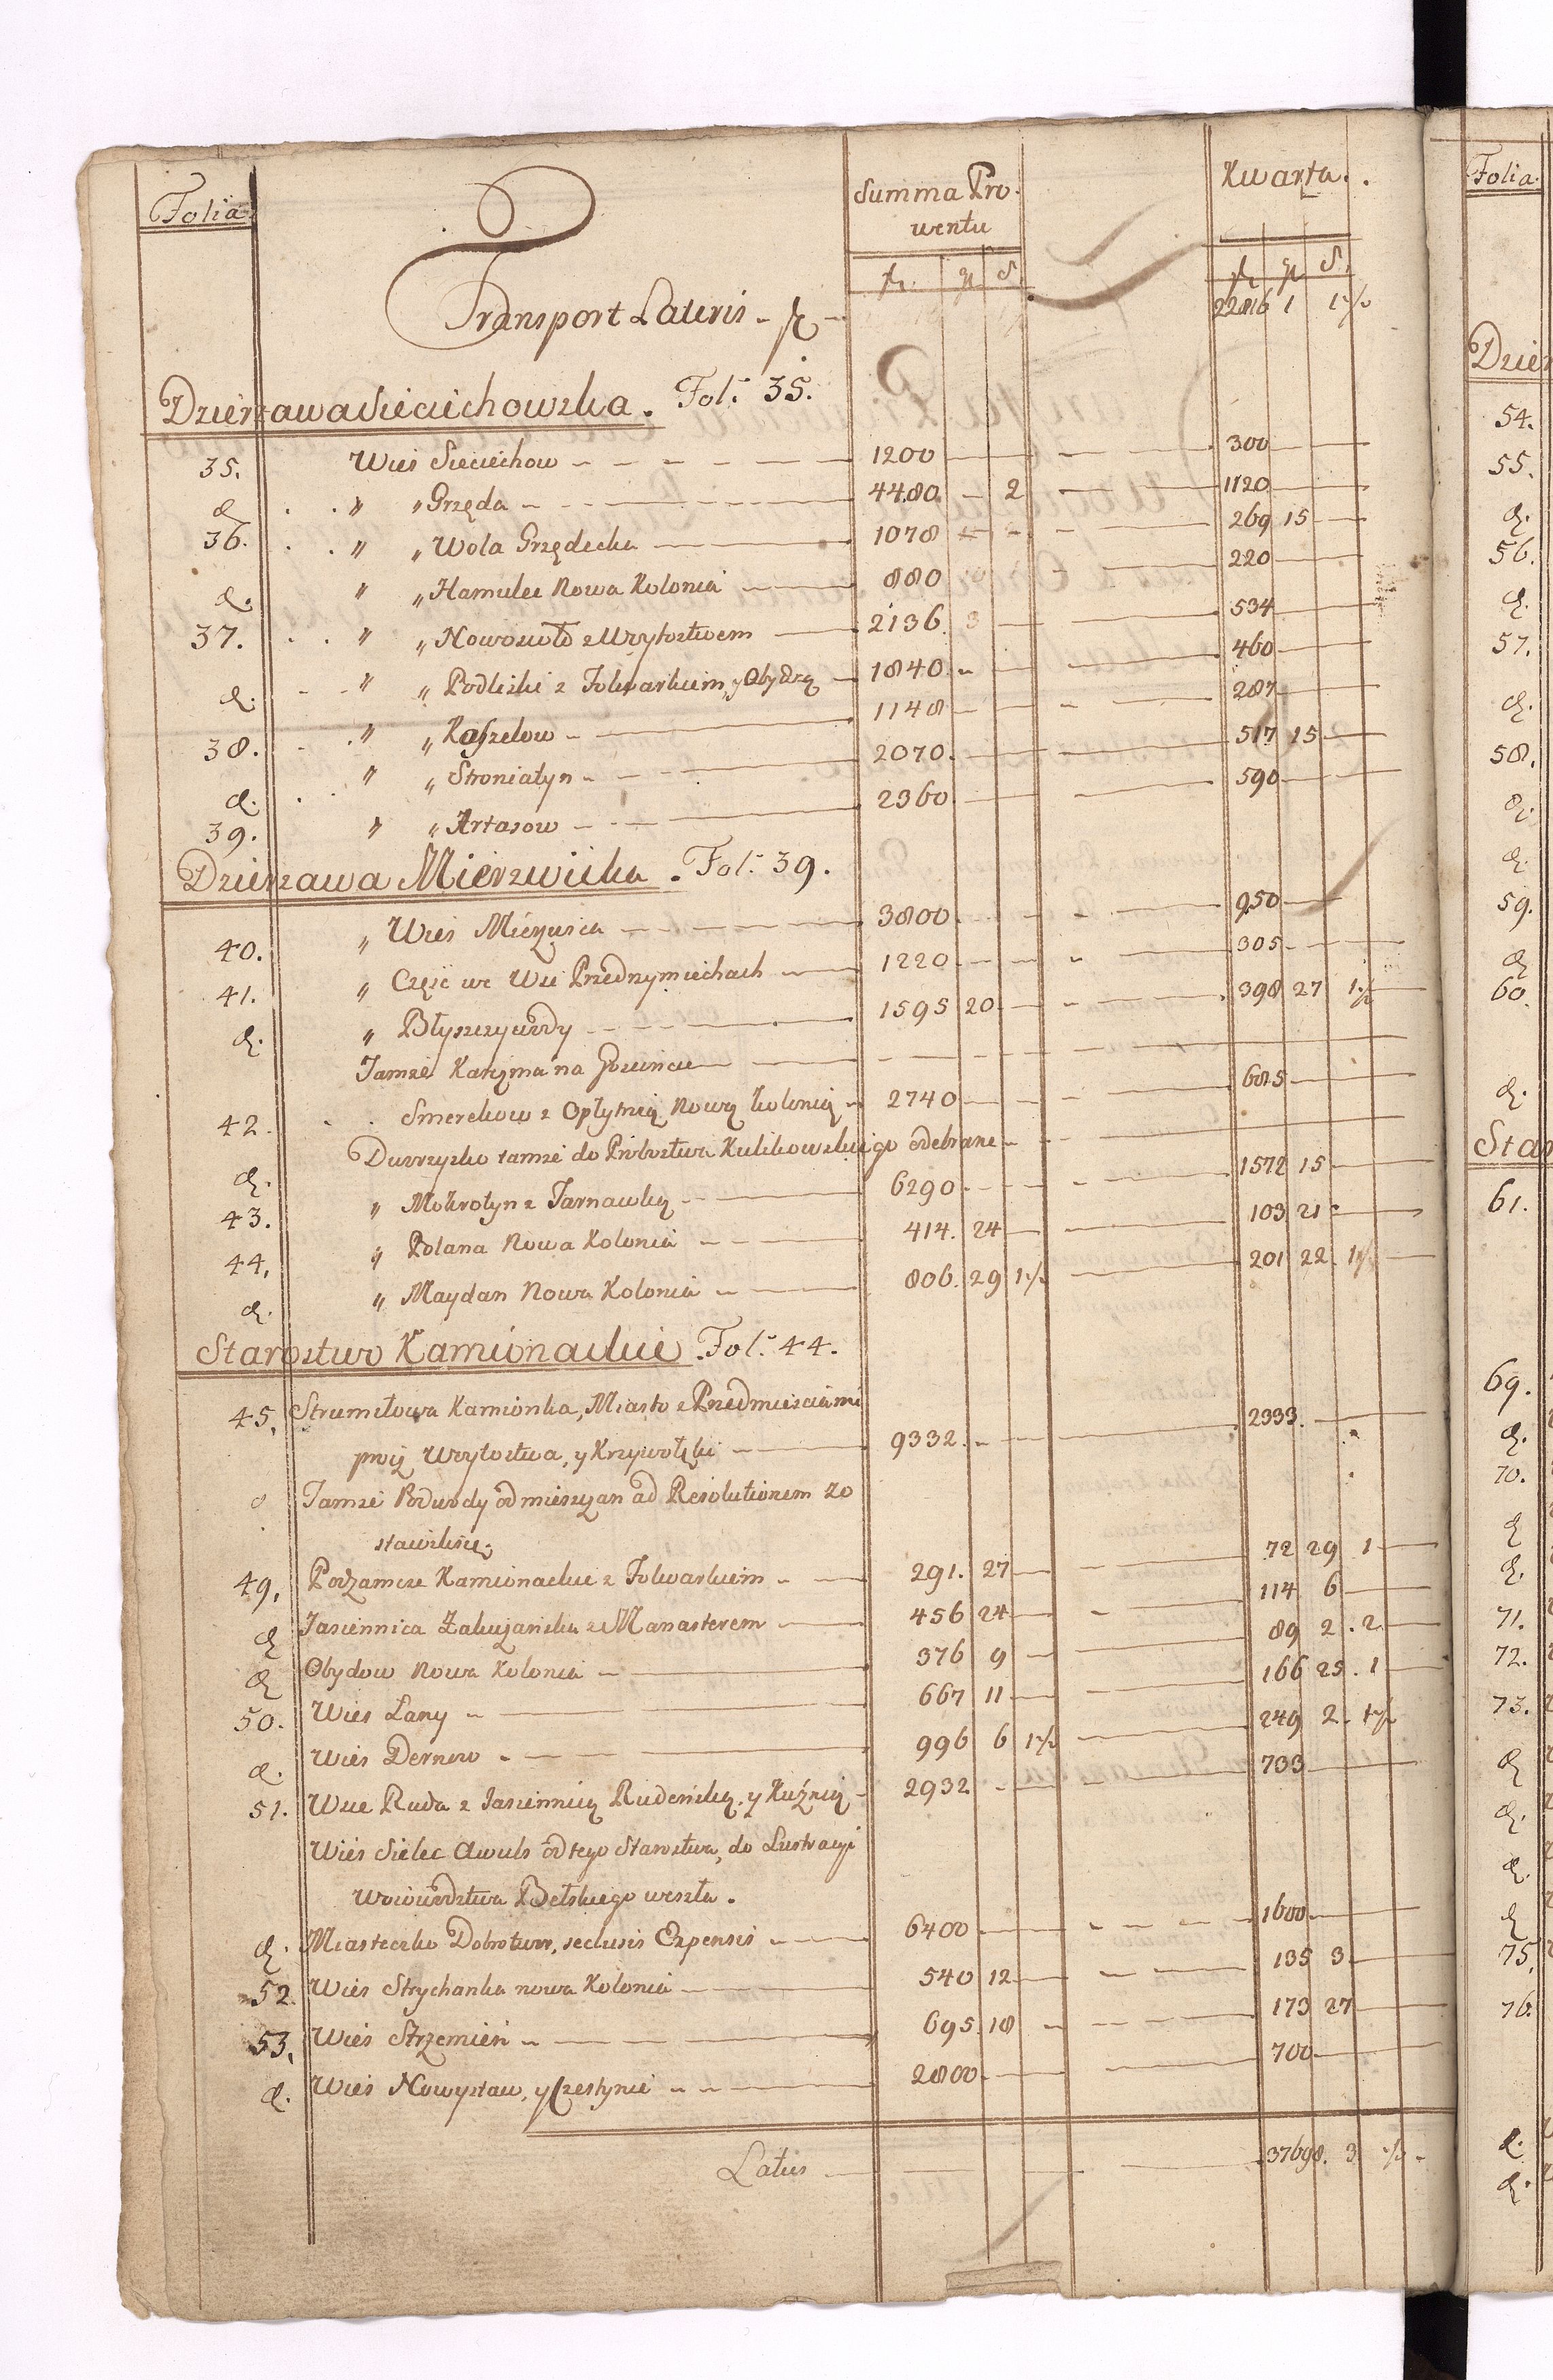 Folia
Summa Pro-
wentu
Kwarta.
fl. gr. S.
fl. gr. S.
Transport Lateris - fl - 22816 1 1½
Dzierzawa Sieciechowska. Fol: 35.
35. Wieś Sieciechow 1200 300
d " " Grzęda 4480 - 2 1120
36. " " Wola Grzędecka 1078 269 15
d. " " Hamulec Nowa Kolonia 880 220
37. " " Nowosioło z Wuytostwem 2136 534
d. " " Podliski z Folwarkiem, y Obydrą 1840 460
38. " " Koszelow 1148 287
d. " " Stroniatyn 2070 517 15
39. " " Artasow 2360 590
Dzierzawa Mierzwicka. Fol: 39.
40. " Wieś Mierzwica 3800 950
41. " Częsć we Wsi Przedrzymiechach 1220 305
d. " Błyszczywody 1595 20 398 27 1½
Tamże Karczma na Goscincu
42. Smerekow z Opłytnią Nową Kolonią 2740 685
d. Dworzysko tamże do Probostwa Kulikowskiego odebrane
43. " Mokrotyn z Tarnawką 6290 1572 15
44. " Polana Nowa Kolonia 414 24 103 21
d. " Maydan Nowa Kolonia 806 29 1½ 201 22 1½
Starostwo Kamionackie. Fol: 44.
45. Strumiłowa Kamionka, Miasto z Przedmieściami
procz Wuytostwa, y Krzywołęki 9332 2333
Tamże Podwody od mieszczan ad Resolutionem zo
stawiłiśmy.
49. Podzamcze Kamionackie z Folwarkiem 291. 27 72 29 1
d Jasiennica Zabużańska z Manasterem 456 24 114 6
d Obydow Nowa Kolonia 376 9 89 2 2
50. Wieś Lany 667 11 166 25 1
d. Wieś Dernow 996 6 1½ 249 2 1½
51. Wsie Ruda z Jasiennicą Rudeńską, y Kuźnią 2932 733
Wieś Sielec Awuls od tego Starostwa, do Lustracyi
Woiewodztwa Bełskiego weszła.
d. Miasteczko Dobrotwor, seclusis Expensis 6400 1600
52. Wieś Strychanka nowa Kolonia 540 12 135 3
53. Wieś Strzemień 695 18 173 27
d. Wieś Nowystaw, y Czestynie 2800 700
Latus 37698. 3 ½
Folia
54.
55.
d.
56.
d.
57.
d.
58.
d.
d
59.
d
60.
d.
61.
69.
d.
70.
d
d.
71.
72.
73.
d
d.
d.
d
75.
76.
d.
d.